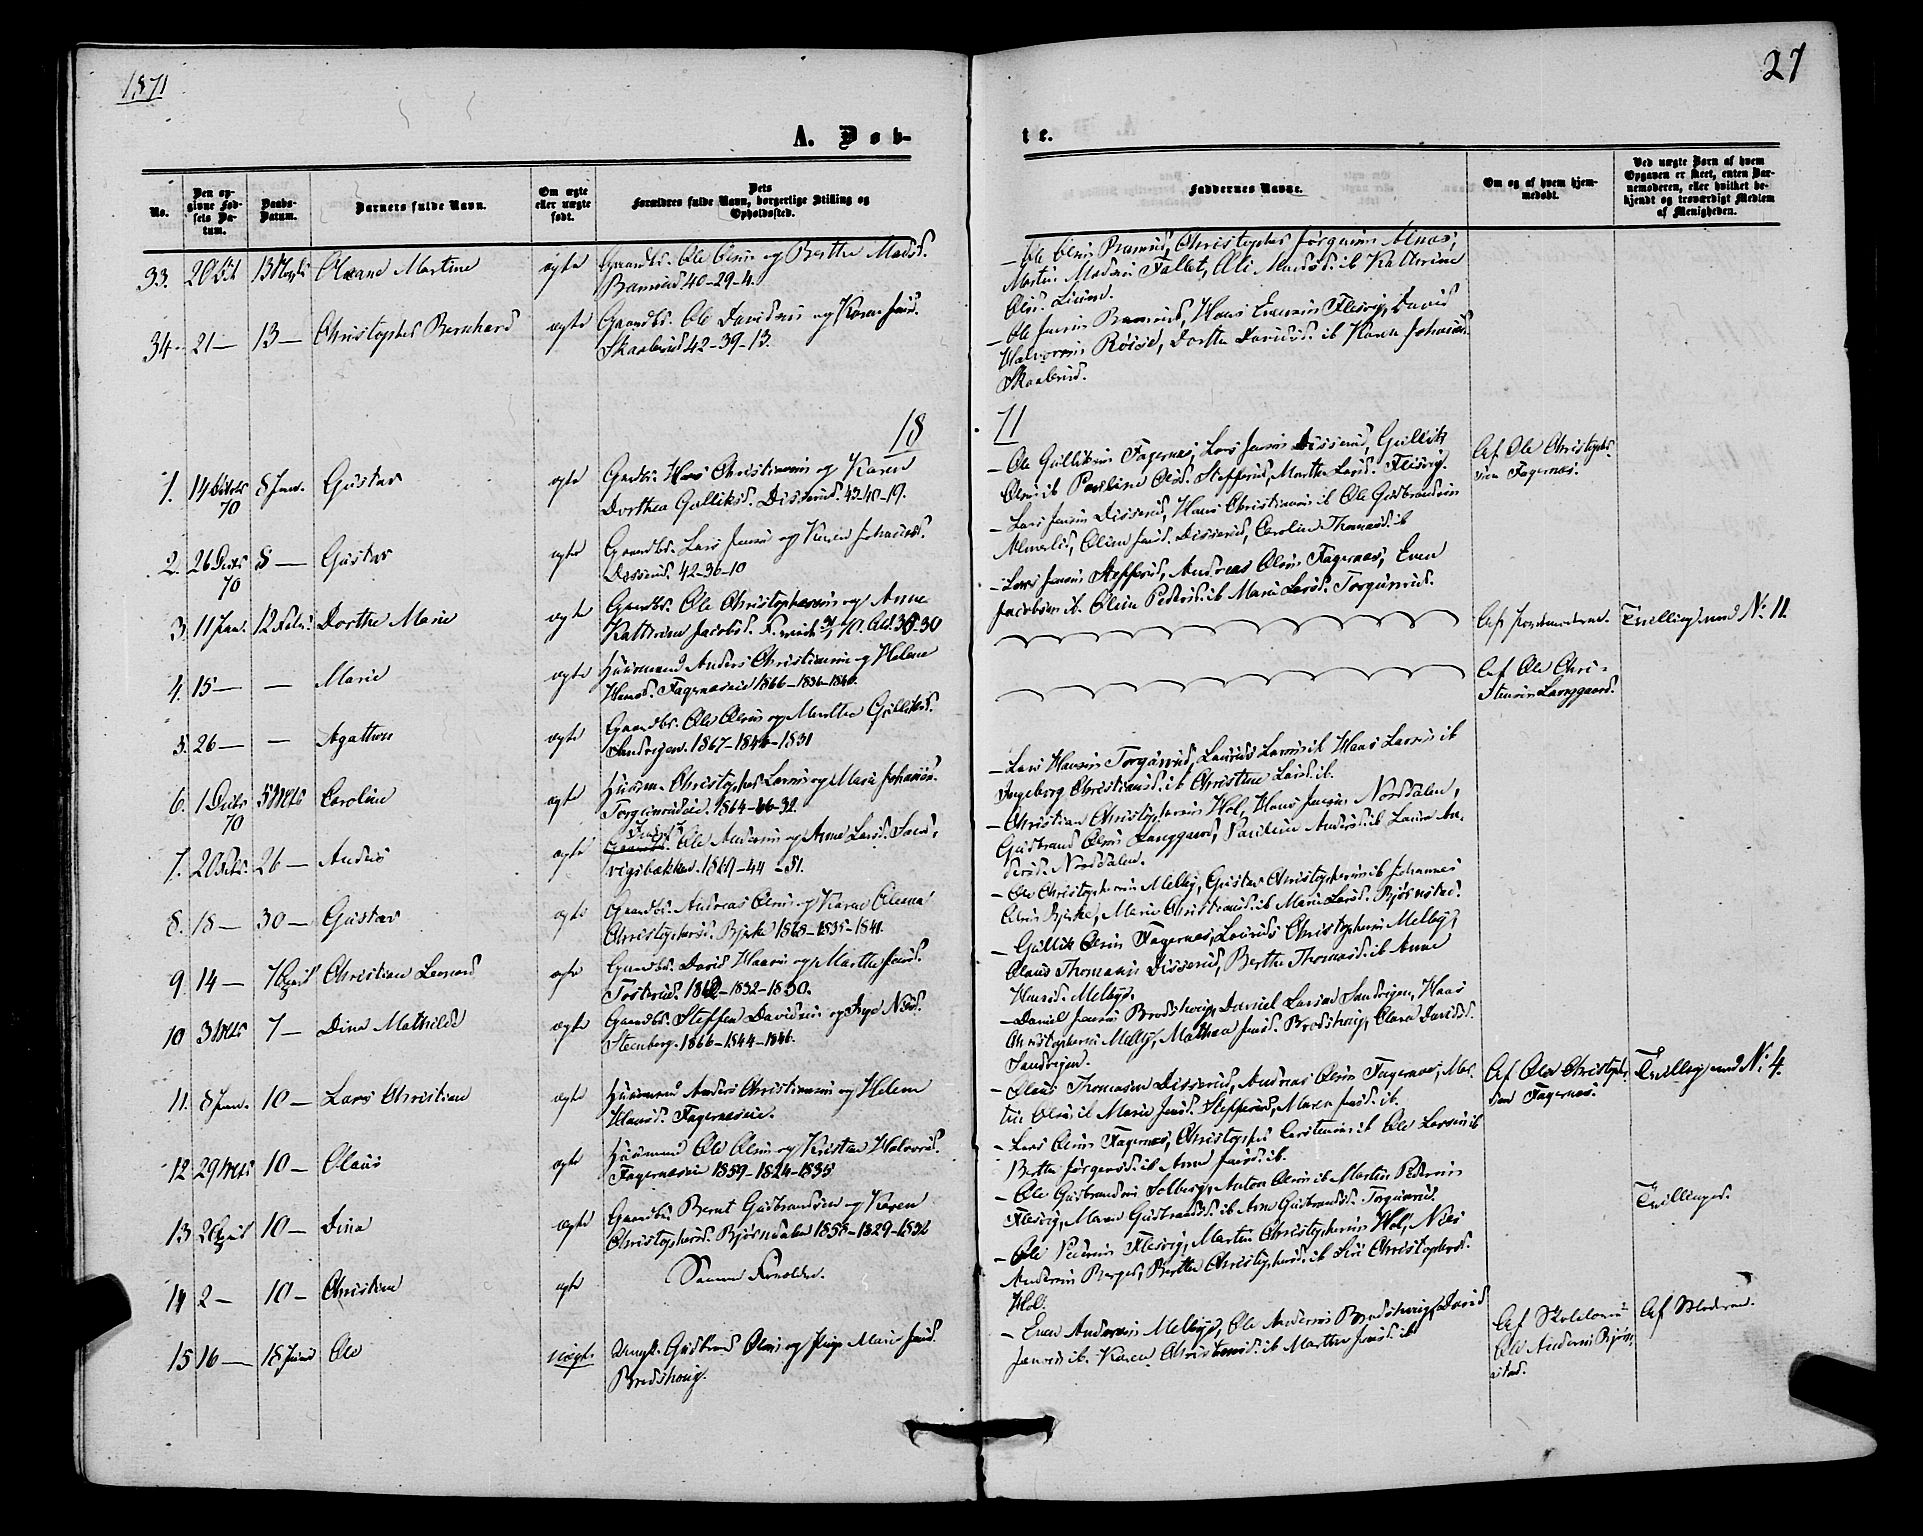 1871
27
A. Døb-
te.
No.
Den opgivne Fødsels Datum.
Daabs-Datum.
Barnets fulde Navn.
Om ægte eller uægte født.
Dets Forældres fulde Navn, borgerlige Stilling og Opholdssted.
Faddernes Navne.
Om og af hvem hjemmedøbt.
Ved uægte Børn af hvem Opgaven er skeet, enten Barnemoderen, eller hvilket bekjendt og troværdigt Medlem af Menigheden.
33. 20 Oct 13 Novbr Oleane Martine ægte Gaardbr. Ole Olsen og Berthe Madsd.
40-29-4.
- Ole Olsen Christopher Jørgensen
Martin Madsen Fallet, Kathrine
Olsd.
34. 21 - 13 - Christopher Bernhard ægte Gaardbr. Ole Davidsen og Karen Jensd.
Skaalerud 42-39-13.
- Ole Jensen Hans Evensen Flesvig, David
Halvorsen Dorthe Davidsd. ib Karen Johannesd.
Skaalerud.
18
71
1. 14 Octbr 70 8 Jan. Gustav ægte Gaardbr. Hans Christiansen og Karen
Dorthea Gulliksd. Disserud 42-48-19.
- Ole Gulliksen Fagernæs, Lars Jensen Disserud, Gullik
Olsen ib Pauline Olsd. Stefferud, Marthe Larsd. Flesvig.
Af Ole Christophersen Fagernæs.
2. 26 Decbr 70 8 - Gustav ægte Gaardbr. Lars Jensen og Karen Johannesd.
Disserud 42-36-10
- Lars Jensen Disserud, Hans Christiansen ib Ole Gudbrandsen
Oline Jensd. Disserud, Caroline Thomasd. ib
3. 11 Jan. 12 Febr. Dorthe Marie ægte Gaardbr. Ole Christophersen og Anne
Kathrine Jacobsd.
- Lars Jensen Stefferud, Andreas Olsen Fagernæs, Even
Jacobsen ib. Oline Pedersd. ib Marie Larsd. Torgunrud.
4. 15 - - Marie ægte Huusmand Anders Christiansen og Helene
Hansd. Fagernæseie 1866-1836-1840.
Af Jordemoderen. Tvilling med No. 11.
5. 26 - - Agathon ægte Gaardbr. Ole Olsen og Marthe Gulliksd.
Sandvigen. 1867-1844-1831
Af Ole Christensen Langgaard.
6. 1 Decbr 70 5 Marts Caroline ægte Huusm. Christopher Larsen og Marie Johannesd.
Torgunrudeie. 1864-
- Lars Hansen Torgunrud, Laurits Larsen ib Hans Larsen ib
Ingeborg Christiansd. ib Christine Larsd. ib.
7. 20 Febr. 26 - Anders ægte Ole Andersen og Anne Larsd. Sandvigsbakken. 1869-44-51.
- Christian Christophersen Hol, Hans Jensen Norddalen,
Gudbrand Olsen Langgaard, Pauline Andersd. ib Laura Andersd. Norddalen.
8. 18 - 30 - Gustav ægte Gaardbr. Andreas Olsen og Karen Oleana
Christophersd. Bjerke 1868-1835-1841.
- Ole Christophersen Melby, Gustav Christophersen ib Johannes
Olsen Bjerke, Marie Christiansd. ib Marie Larsd. Bjørnstad.
9. 14 - 7 April Christian Leonard ægte Gaardbr. David Hansen og Marthe Jensd.
Tosterud. 1862-1832-1830.
- Gullik Olsen Fagernæs, Laurits Christophersen Melby,
Claus Thomasen Disserud, Berthe Thomasd. ib Anne
Hansd. Melby.
10 3 Marts 7 - Dina Mathilde ægte Gaardbr. Steffen Davidsen og Nilsd.
Steenberg. 1866-1844-1846.
- Daniel Jensen Brodshoug, Daniel Larsen Sandvigen, Hans
Christophersen Melby, Mathea Jensd. Brodshoug, Clara Davidsd.
Sandvigen.
11. 8 Jan. 10 - Lars Christian ægte Huusmand Anders Christiansen og Helene
Hansd. Fagernæseie.
- Claus Thomasen Disserud, Andreas Olsen Fagernæs, Martin Olsen ib Marie Jensd. Stefferud, Maren Jensd. ib.
Af Ole Christophersen Fagernæs.
Tvilling med No. 4.
12 29 Marts 10 - Olaus ægte Huusmand Ole Olsen og Kristine Halvorsd.
Fagernæseie 1859-1824-1835
- Lars Olsen Fagernæs, Christopher Carstensen ib Ole Larsen ib
Berthe Jørgensd. ib Anne Jensd. ib.
13 2 April 10 - Dina ægte Gaardbr. Bernt Gudbrandsen og Karen
Christophersd. Bjørndalen 1858-1829-1832
- Ole Gudbrandsen Solberg, Anton Olsen ib Martin Pedersen
Flesvig, Maren Gudbrandsd. ib Anne Gudbrandsd. Torgunrud.
Tvillinger.
14 2 - 10 - Christine ægte Samme Forældre.
- Ole Pedersen Flesvig, Martin Christophersen Hol, Nils
Andersen Berger, Berthe Christophersd. ib Siri Christophersd.
Hol.
15 16 - 18 Juni Ole uægte Ungk. Gudbrand Olsen og Pige Marie Jensd.
Brodshoug.
- Even Andersen Melby, Ole Andersen Brodshoug, David
Jensen ib. Karen Christensd. ib Marthe Jensd. ib
Af Skolelærer
Ole Andersen Bjørnstad.
Af Moderen.